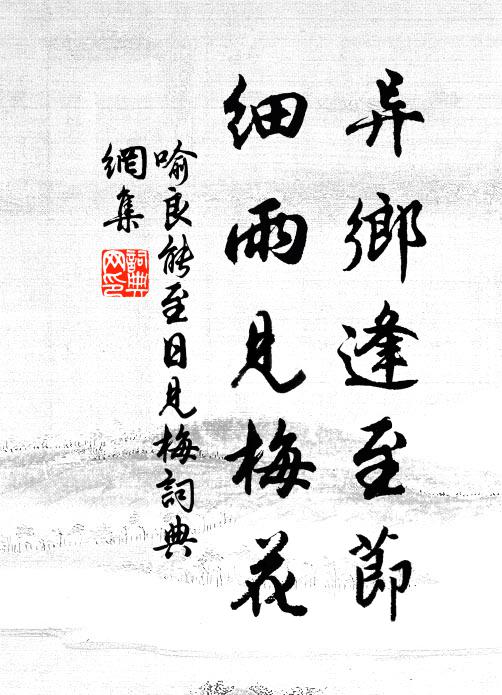 异鄉逢至節
細雨見梅花
喻良能至日見梅詞典
網集
詞典
网印